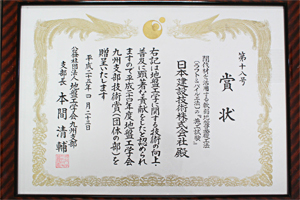 第十八号
賞状
日本建設技術株式会社殿
右記は地盤工学に関する技術の向上・
普及に顕著な貢献をしたと認められ
ますので平成二十四年度地盤工学会
九州支部技術賞(団体の部)を
贈呈いたします
平成二十五年四月二十三日
公益社団法人地盤工学会九州支部
支部長 本間清輔